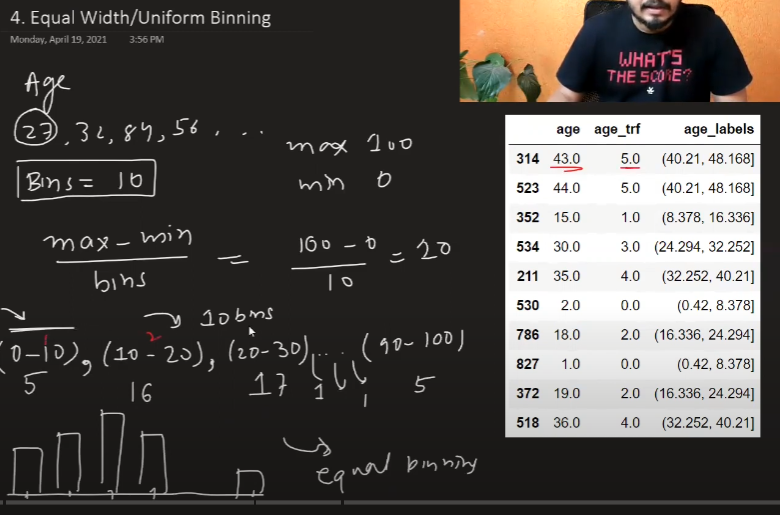 4. Equal Width/Uniform Binning
Monday, April 19, 2021 3:56 PM
WHAT'S
THE SCORE?
Age
27, 32, 84, 56, ...
Bins = 10
max 100
min 0
max - min
bins
=
100 - 0
10
= 20
10 bins
2
(0-10), (10-20), (20-30) ... (90-100)
5 16 17 1 1 5
equal binning
age age_trf age_labels
314 43.0 5.0 (40.21, 48.168]
523 44.0 5.0 (40.21, 48.168]
352 15.0 1.0 (8.378, 16.336]
534 30.0 3.0 (24.294, 32.252]
211 35.0 4.0 (32.252, 40.21]
530 2.0 0.0 (0.42, 8.378]
786 18.0 2.0 (16.336, 24.294]
827 1.0 0.0 (0.42, 8.378]
372 19.0 2.0 (16.336, 24.294]
518 36.0 4.0 (32.252, 40.21]